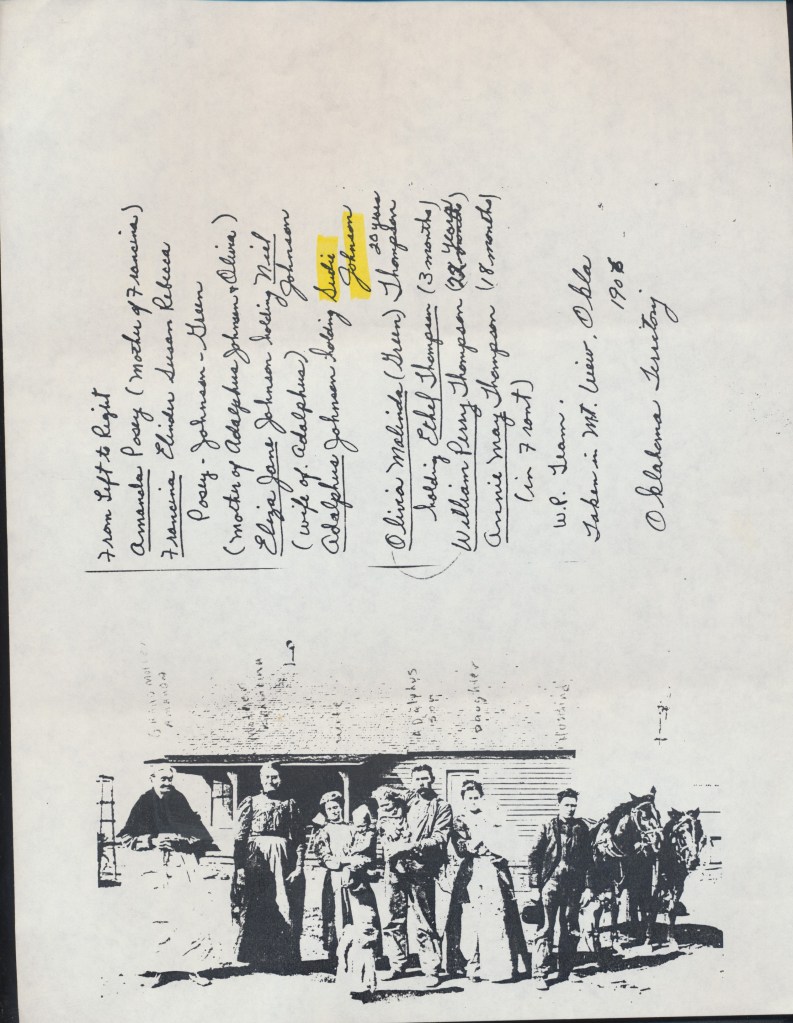 From Left to Right
Amanda Posey (Mother of Francina)
Francina Elinder Susan Rebecca
Posey - Johnson - Green
(Mother of Adalphus Johnson & Olivia)
Eliza Jane Johnson holding Niel
Johnson
(Wife of Adalphus)
Adalphus Johnson holding Sudie
Johnson
20 years
Olivia Malinda (Green) Thompson
holding Ethel Thompson (3 months)
William Perry Thompson (22 years)
Annie May Thompson (18 months)
(in Front)
W.P. Team.
Taken in Mt. View, Okla
190
Oklahoma Territory
Grandmother
Amanda
Mother
wife
Adalphus
son
Daughter
Husband